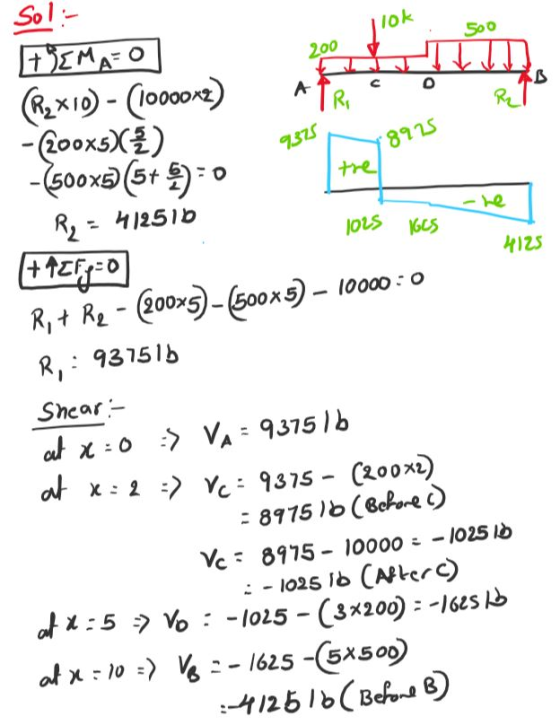 Sol :-
+↺ΣM_A = 0
(R₂×10) - (10000×2)
-(200×5)(5/2)
-(500×5)(5+5/2) = 0
R₂ = 4125 lb
10k
500
200
A
R₁
C
D
R₂
B
9375
8975
+ve
-ve
1025
1625
4125
+↑ΣFy=0
R₁ + R₂ - (200×5) - (500×5) - 10000 = 0
R₁ : 9375 lb
Shear :-
at x = 0 => V_A = 9375 lb
at x = 2 => V_C = 9375 - (200×2)
= 8975 lb (Before C)
V_C = 8975 - 10000 = -1025 lb
= -1025 lb (After C)
at x = 5 => V_D = -1025 - (3×200) = -1625 lb
at x = 10 => V_B = -1625 - (5×500)
= -4125 lb (Before B)